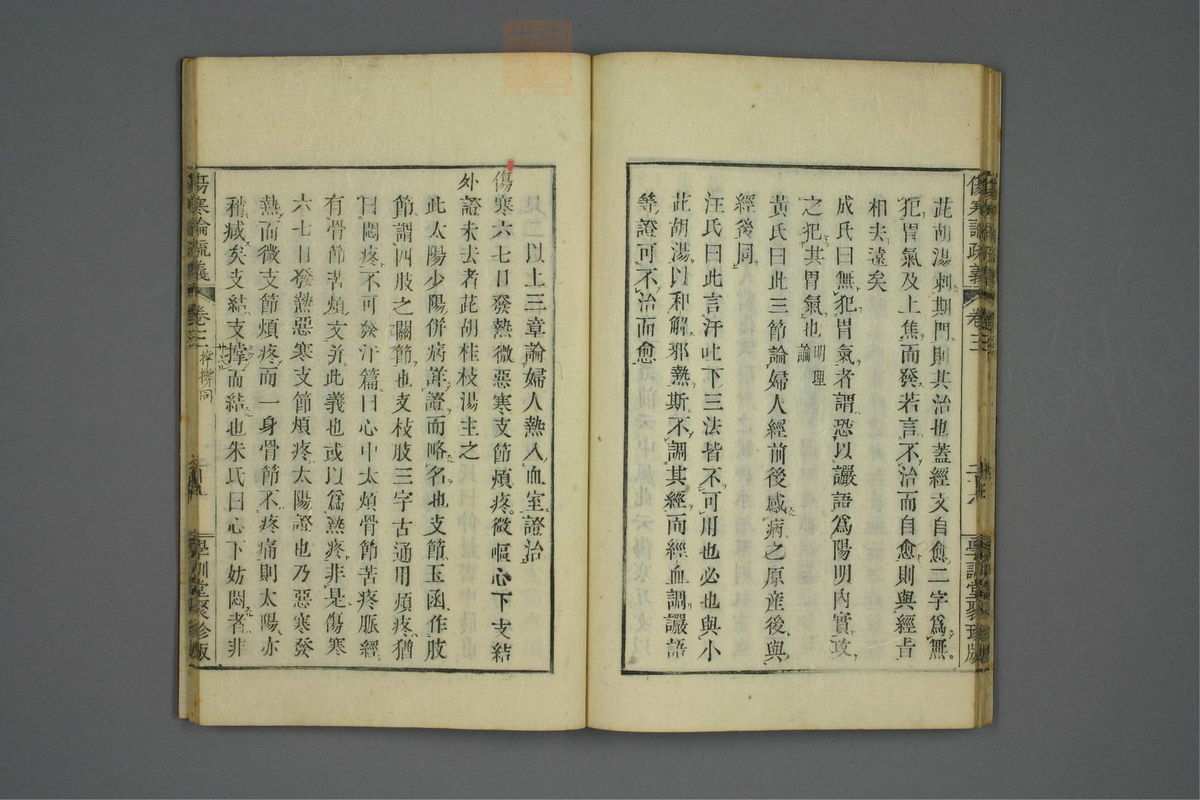 傷寒論疏義 卷三 二十八 學訓堂聚珍版
茈胡湯刺期門則其治也蓋經文自愈二字爲無
犯胃氣及上焦而發若言不治而自愈則與經旨
相去遠矣
成氏曰無犯胃氣者謂恐以讝語爲陽明內實攻
之犯其胃氣也明理論
黃氏曰此三節論婦人經前後感病之原產後與
經後同
汪氏曰此言汗吐下三法皆不可用也必也與小
茈胡湯以和解邪熱斯不調其經而經血調讝語
等證可不治而愈
以上三章論婦人熱入血室證治
傷寒六七日發熱微惡寒支節煩疼微嘔心下支結
外證未去者茈胡桂枝湯主之
此太陽少陽併病葬證而略名也支節玉函作肢
節謂四肢之關節也支枝肢三字古通用煩疼猶
曰悶疼不可發汗篇曰心中太煩骨節苦疼脈經
有骨節苦煩文并此義也或以爲熱疼非是傷寒
六七日發熱惡寒支節煩疼太陽證也乃惡寒發
熱而微支節煩疼而一身骨節不疼痛則太陽亦
稍減矣支結支撑而結也朱氏曰心下妨悶者非
傷寒論疏義 卷三 學訓堂聚珍版